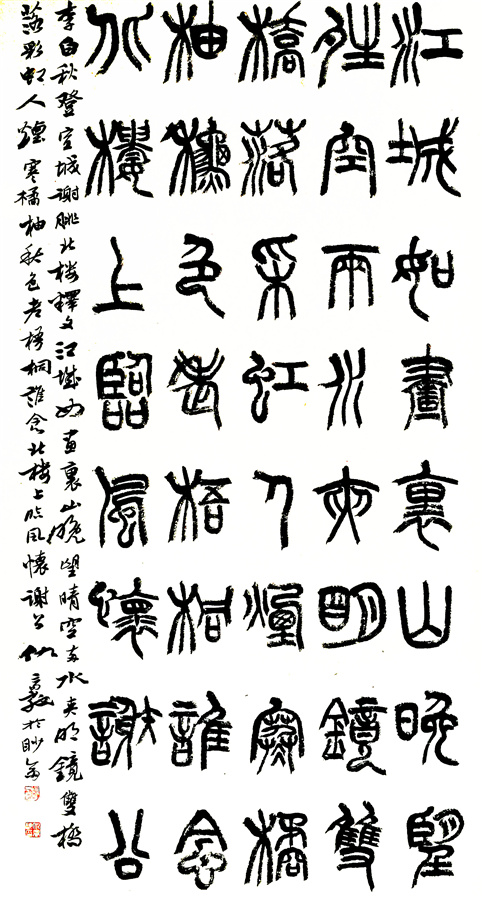 江城如畫裏山晚望
晴空兩水夾明鏡雙
橋落采虹人煙寒橘
柚秋色老梧桐誰念
北樓上臨風懷謝公
李白秋登宣城謝朓北樓釋文江城如畫裏山晚望晴空兩水夾明鏡雙橋
落彩虹人煙寒橘柚秋色老梧桐誰念北樓上臨风懷謝公